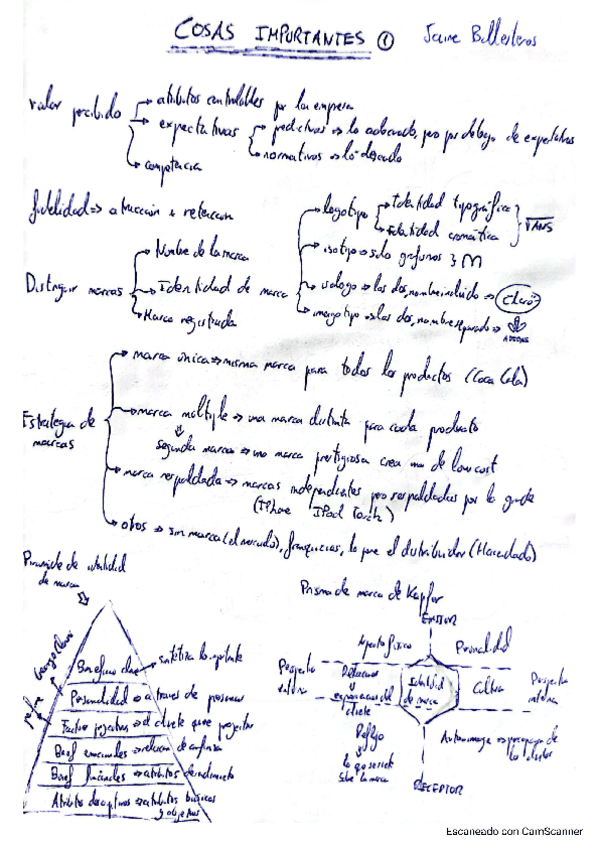 COSAS IMPORTANTES ① Jaime Ballesteros
valor percibido
atributos controlables por la empresa
expectativas
predictivas => lo adecuado, pero por debajo de expectativas
normativas => lo deseado
competencia
fidelidad => atracción + retención
Distinguir marcas
Nombre de la marca
Identidad de marca
Marca registrada
logotipo
Identidad tipográfica
Identidad cromática
VANS
isotipo => solo grafismos } M
isologo => los dos, nombre incluido => Claro
imagotipo => los dos, nombre separado =>
ADIDAS
Estrategia de marcas
marca única => misma marca para todos los productos (Coca Cola)
marca múltiple => una marca distinta para cada producto
segunda marca => una marca prestigiosa crea una de low cost
marca respaldada => marcas independientes pero respaldadas por la grande
(IPhone IPod Touch)
otros => sin marca (el mercado), franquicias, la pone el distribuidor (Hacendado)
Pirámide de identidad
de marca
Beneficio clave => sintetiza lo importante
Personalidad => a través de personas
Factor proyectivo => el cliente quiere proyectar
Benef emocionales => relación de confianza
Benef funcionales => atributos de rendimiento
Atributos descriptivos => atributos básicos
y objetivos
Prisma de marca de Kapfer
EMISOR
Aspecto físico
Personalidad
Identidad
de marca
Cultura
Relaciones
expectativas del
cliente
Reflejo
lo que se dice
sobre la marca
Autoimagen =>
RECEPTOR
Escaneado con CamScanner